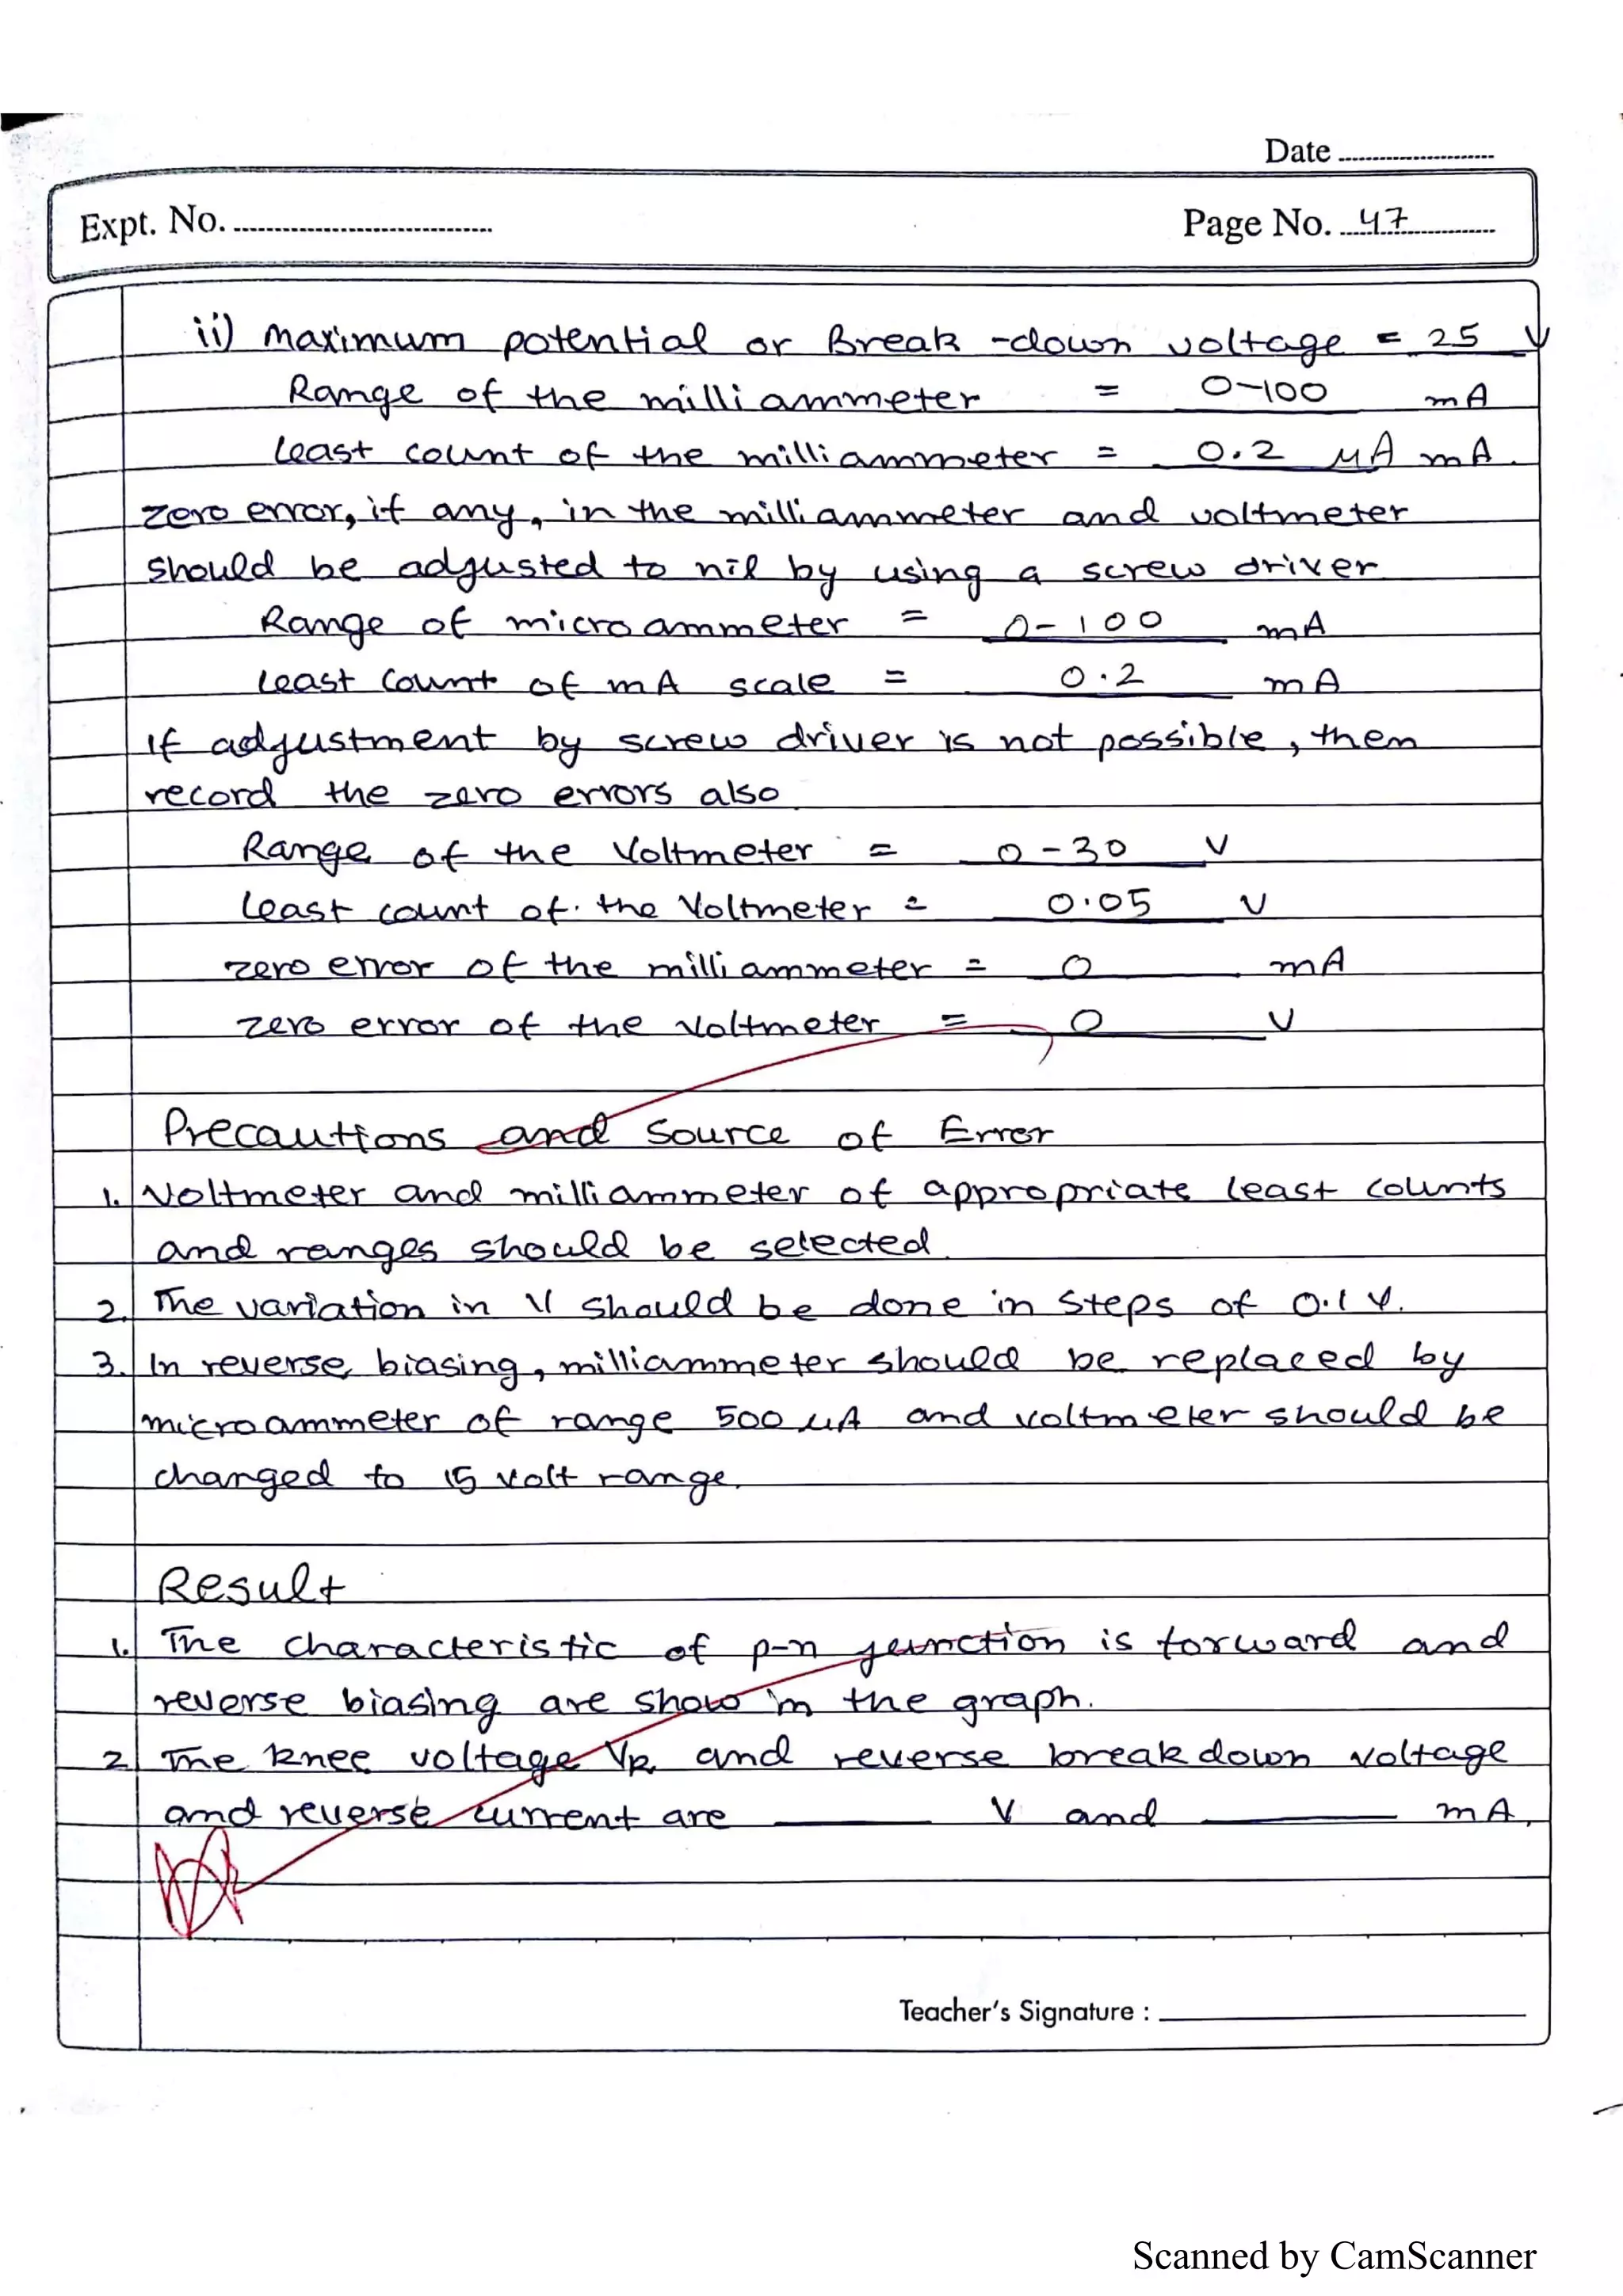 Date
Expt. No.
Page No. 47
ii) Maximum potential or Break-down voltage = 25 V
Range of the milliammeter = 0-100 mA
Least count of the milliammeter = 0.2 μA mA.
Zero error, if any, in the milliammeter and voltmeter
should be adjusted to nil by using a screw driver
Range of microammeter = 0-100 mA
Least Count of mA scale = 0.2 mA
If adjustment by screw driver is not possible, then
record the zero errors also
Range of the Voltmeter = 0-30 V
Least count of the Voltmeter = 0.05 V
zero error of the milliammeter = 0 mA
zero error of the Voltmeter = 0 V
Precautions and Source of Error
1. Voltmeter and milliammeter of appropriate least counts
and ranges should be selected.
2. The variation in V should be done in steps of 0.1 V.
3. In reverse biasing, milliammeter should be replaced by
microammeter of range 500 μA and voltmeter should be
changed to 15 volt range.
Result
1. The characteristic of p-n junction is forward and
reverse biasing are show in the graph.
2. The knee voltage VR and reverse breakdown voltage
and reverse current are ______ V and ______ mA.
Teacher's Signature :
Scanned by CamScanner